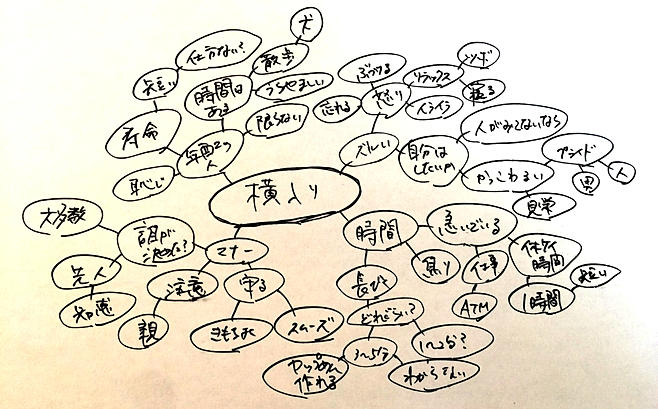 横入り
年配の人
時間はある
散歩
犬
うらやましい
限らない
仕方ない?
短い
寿命
恥じ
ズルい
怒り
ぶつける
忘れる
イライラ
リラックス
自分はしたいか
人がみてないなら
かっこわるい
プライド
男
人
見栄
時間
急いでいる
仕事
ATM
休ケイ時間
1時間
短い
長びく
どれぐらい?
1〜2分?
わからない
3〜5分
カップめん作れる
マナー
守る
スムーズ
きもちよく
注意
親
誰が決めた?
大多数
先人
知恵